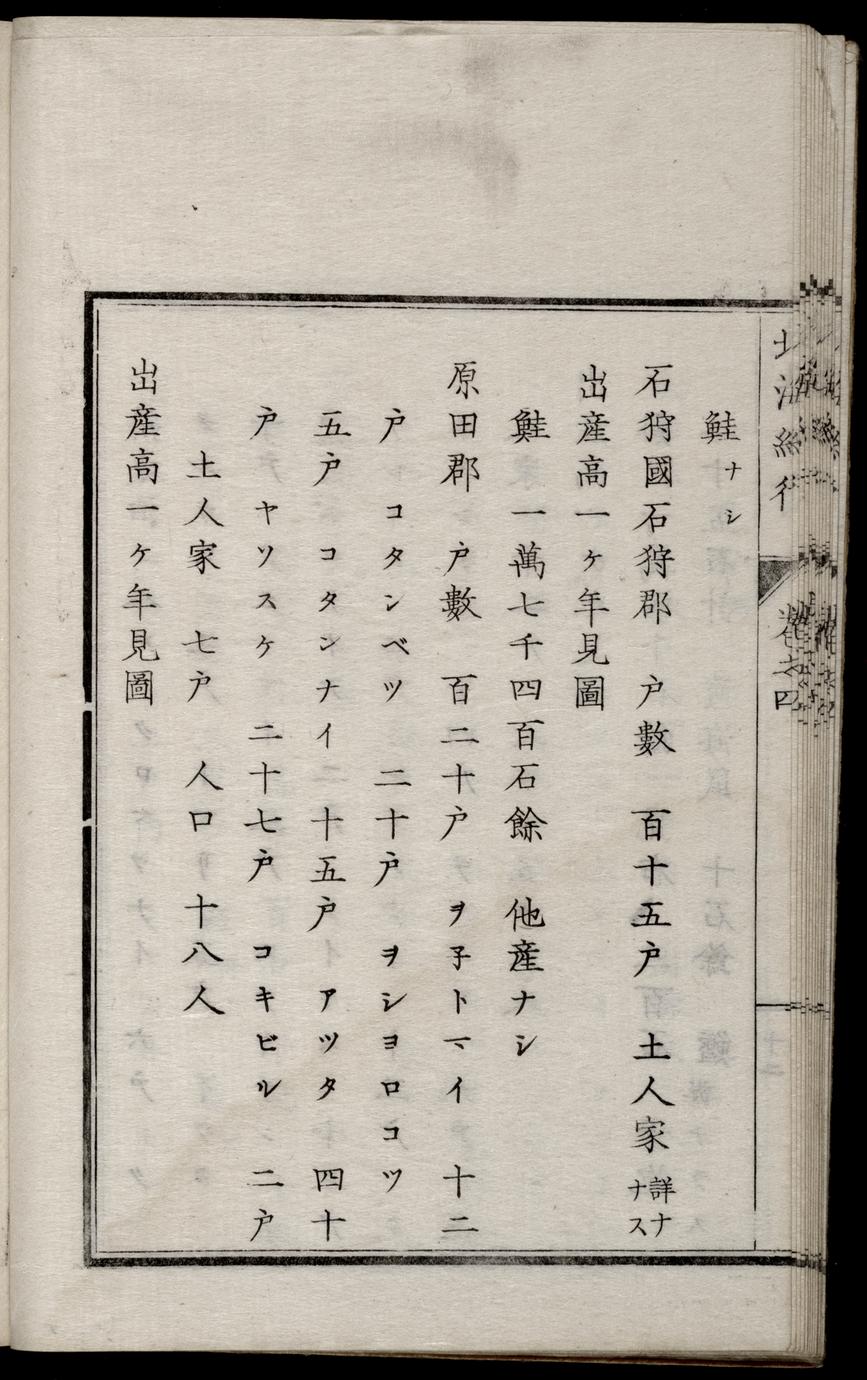 北海紀行 巻之四
鮭ナシ
石狩國石狩郡 戸數 百十五戸 土人家 詳ナナス
出産高一ヶ年見圖
鮭 一萬七千四百石餘 他産ナシ
原田郡 戸數 百二十戸 ヲ子トマイ 十二
戸 コタンベツ 二十戸 ヲショロコツ
五戸 コタンナイ 十五戸 アツタ 四十
戸 ヤソスケ 二十七戸 コキビル 二戸
土人家 七戸 人口 十八人
出産高一ヶ年見圖